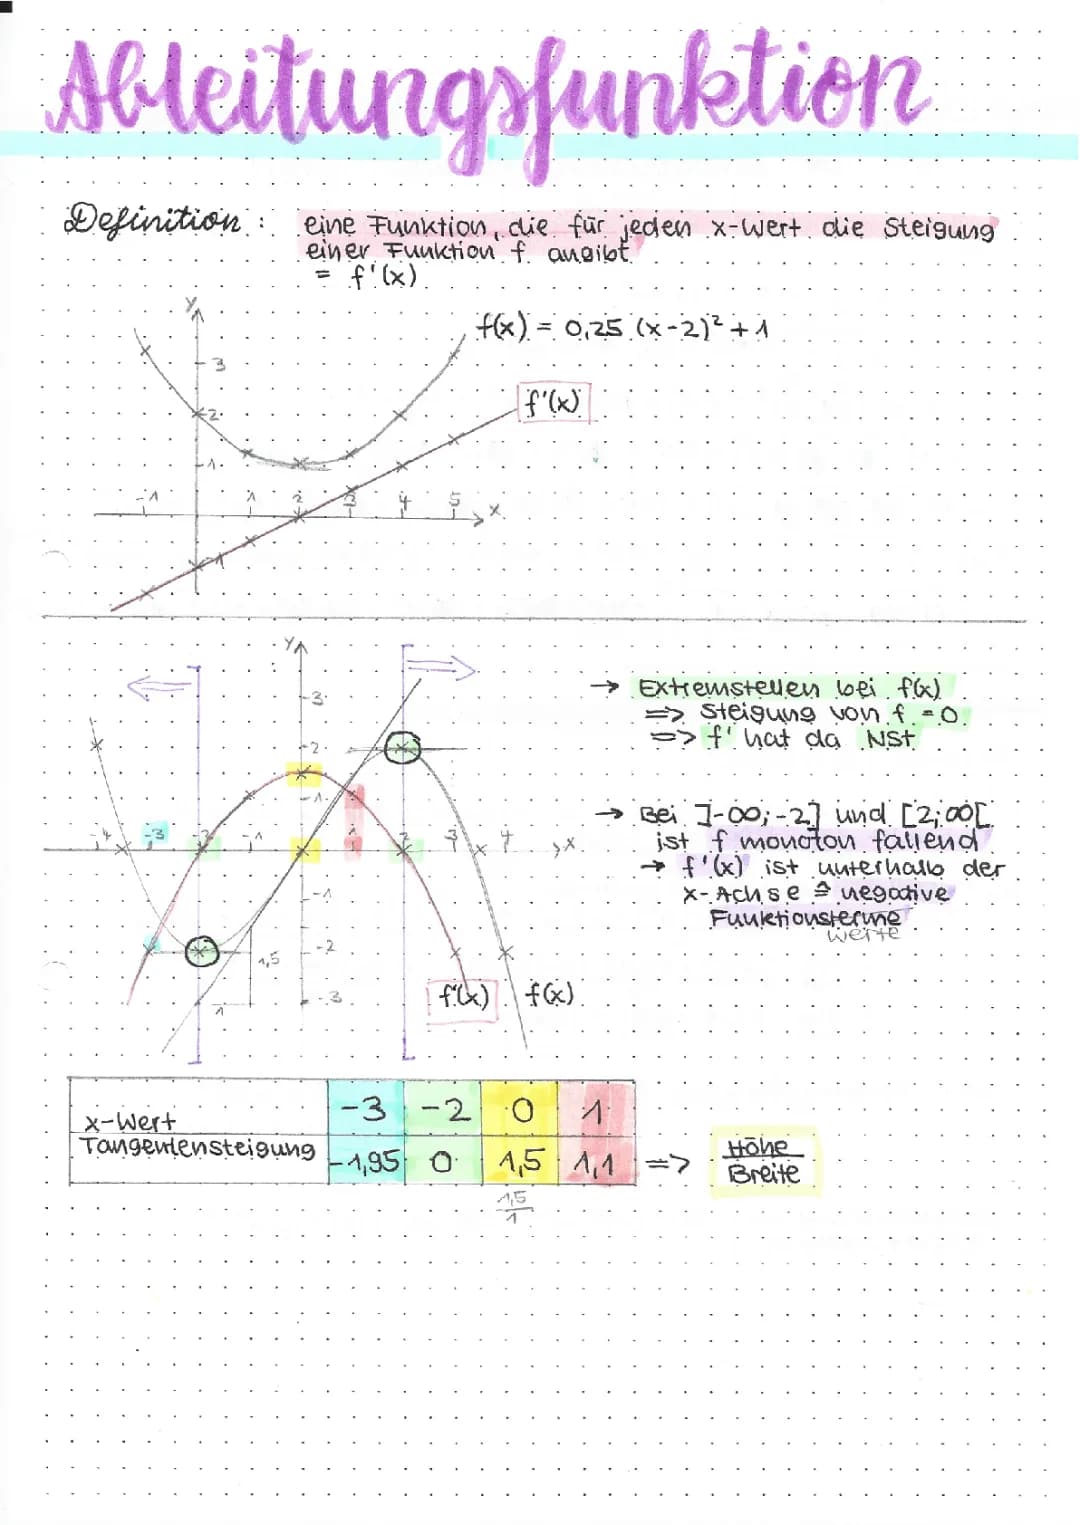 Ableitungsfunktion
Definition : eine Funktion, die für jeden x-Wert die Steigung
einer Funktion f angibt
= f'(x)
y
f(x) = 0,25 (x-2)² + 1
3
f'(x)
2
1
-1 1 2 3 4 5 x
-1
y
3
→ Extremstellen bei f(x)
=> Steigung von f = 0
2
=> f' hat da NST
1
→ Bei ]-∞;-2] und [2;∞[
-4 -3 -2 -1 1 2 3 4 x
ist f monoton fallend
→ f'(x) ist unterhalb der
-1
x-Achse ≙ negative
Funktionsterme
werte
-2
1,5
-3
1
f'(x) f(x)
x-Wert -3 -2 0 1
Tangentensteigung -1,95 0 1,5 1,1 => Höhe
Breite
1,5
1